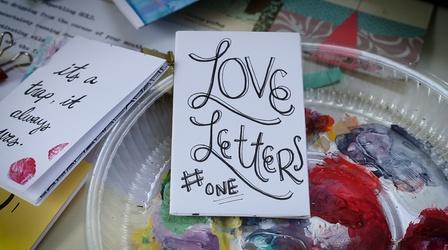 Love
Letters
#ONE
it's a
trap, it
always
was.